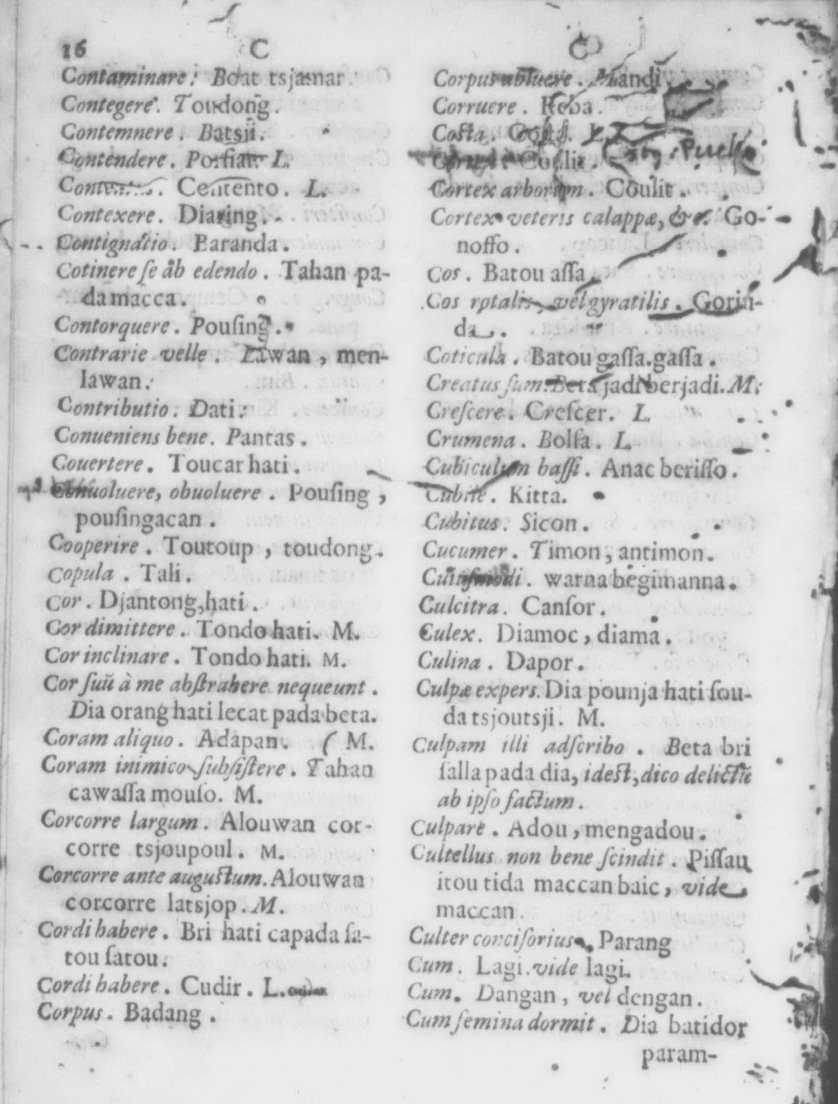 16 C
Contaminare. Boat tsjamar.
Contegere. Toudong.
Contemnere. Batsji.
Contendere. Porfiar L.
Centento. L.
Contexere. Diaring.
Contignatio. Paranda.
Cotinere ſe ab edendo. Tahan pa-
da macca.
Contorquere. Pouſing.
Contrarie velle. Lawan, men-
lawan.
Contributio. Dati.
Conueniens bene. Pantas.
Couertere. Toucar hati.
obuoluere. Pouſing,
pouſingacan.
Cooperire. Toutoup, toudong.
Copula. Tali.
Cor. Djantong, hati.
Cor dimittere. Tondo hati. M.
Cor inclinare. Tondo hati. M.
Cor ſuū à me abſtrahere nequeunt.
Dia orang hati lecat pada beta.
Coram aliquo. Adapan. ( M.
Coram inimico ſubſiſtere. Tahan
cawaſſa mouſo. M.
Corcorre largum. Alouwan cor-
corre tsjoupoul. M.
Corcorre ante auguſtum. Alouwan
corcorre latsjop. M.
Cordi habere. Bri hati capada ſa-
tou ſatou.
Cordi habere. Cudir. L.
Corpus. Badang.
C
Corpus abluere. Mandi.
Corruere. Reba.
Coſta.
Coulit.
Cortex arborum. Coulit.
Cortex veteris calappæ, &c. Go-
noſſo.
Cos. Batou aſſa.
Cos rotalis, vel gyratilis. Gorin-
da.
Coticula. Batou gaſſa gaſſa.
Creatus ſum. Beta jadi berjadi. M.
Creſcere. Creſcer. L.
Crumena. Bolſa. L.
Cubiculum baſſi. Anac beriſſo.
Kitta.
Cubitus. Sicon.
Cucumer. Timon, antimon.
warna begimanna.
Culcitra. Canſor.
Culex. Diamoc, diama.
Culina. Dapor.
Culpæ expers. Dia pounja hati ſou-
da tsjoutsji. M.
Culpam illi adſcribo. Beta bri
ſalla pada dia, ideſt, dico delictū
ab ipſo factum.
Culpare. Adou, mengadou.
Cultellus non bene ſcindit. Piſſau
itou tida maccan baic, vide
maccan.
Culter conciſorius. Parang
Cum. Lagi. vide lagi.
Cum. Dangan, vel dengan.
Cum femina dormit. Dia batidor
param-